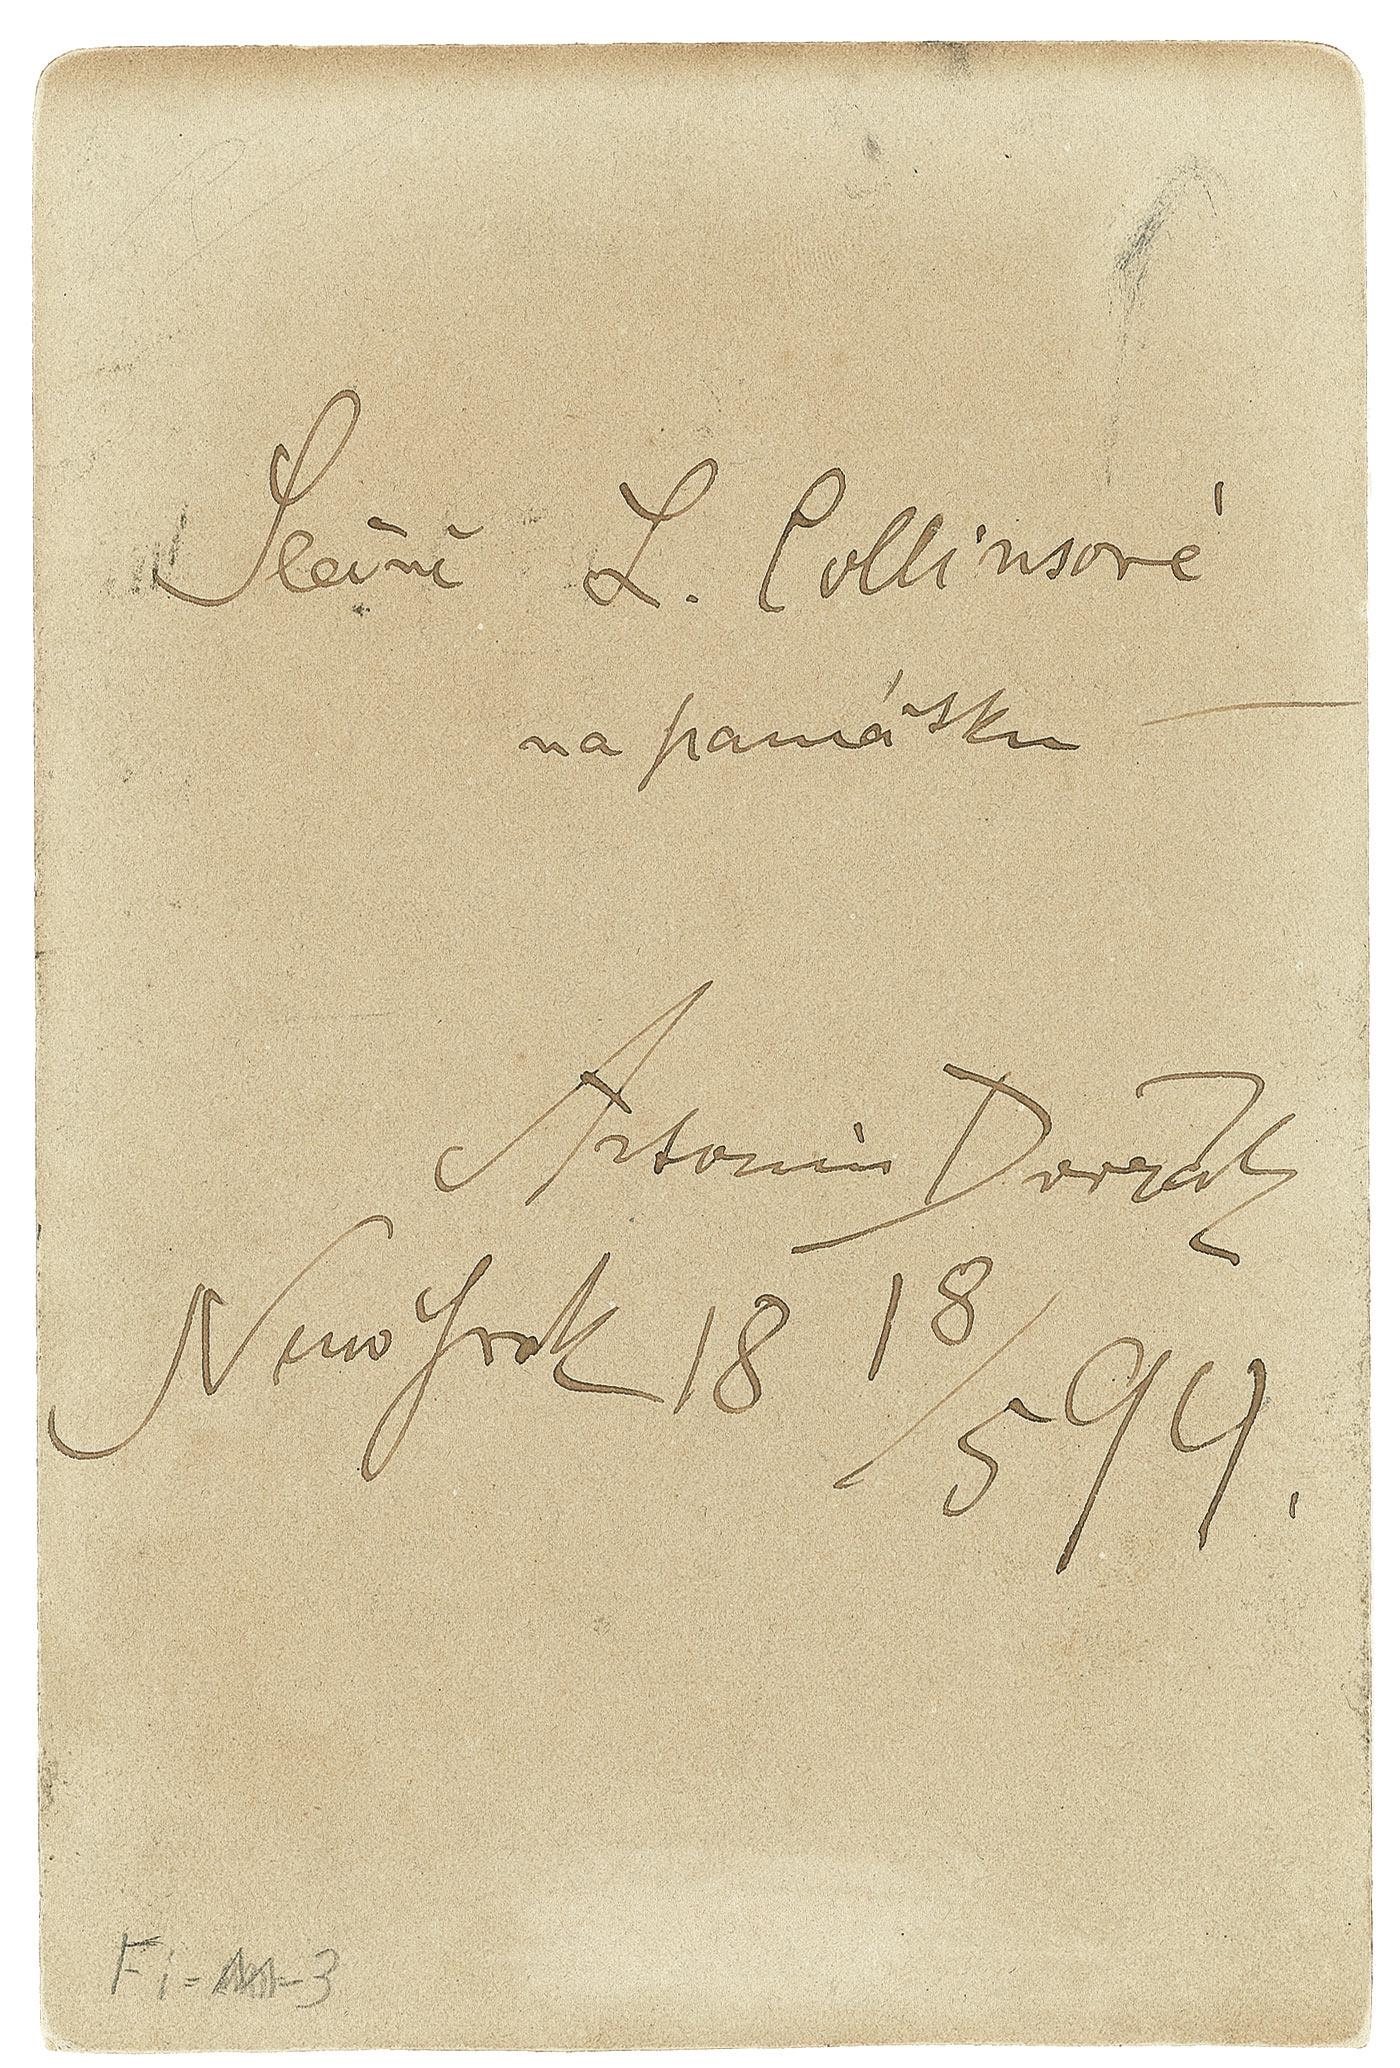 Slečně L. Collinsové
na památku
Antonín Dvořák
New York 18 18/5 94.
Fi-
3